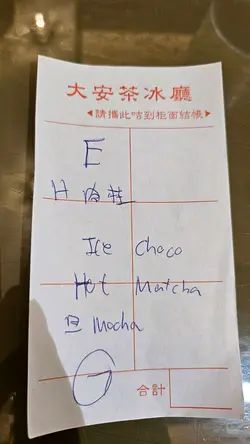 大安茶冰廳
◀請攜此咭到柜面結帳▶
E
H
Ice Choco
Hot Matcha
旦 Mocha
合計